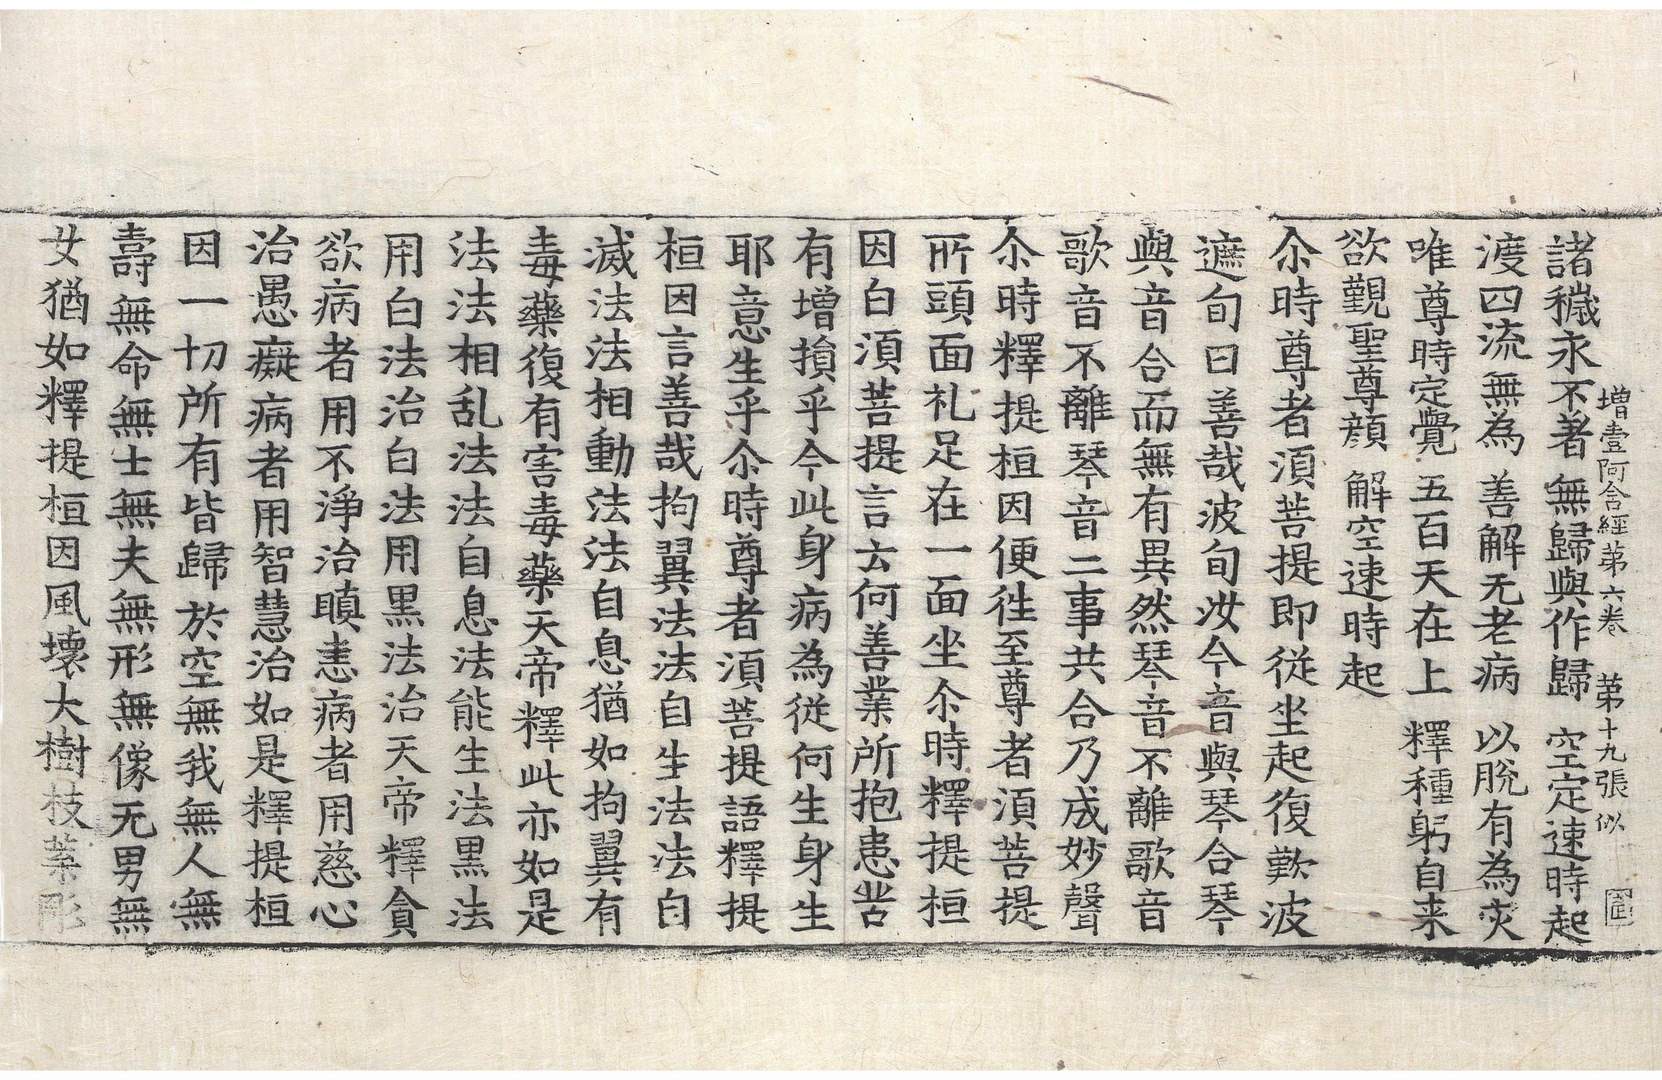 增壹阿含經第六卷 第十九張 似
諸穢永不著 無歸與作歸 空定速時起
渡四流無為 善解无老病 以脫有為灾
唯尊時定覺 五百天在上 釋種躬自来
欲觀聖尊顔 解空速時起
尒時尊者湏菩提即從坐起復歎波
遮旬曰善哉波旬汝今音與琴合琴
與音合而無有異然琴音不離歌音
歌音不離琴音二事共合乃成妙聲
尒時釋提桓因便往至尊者湏菩提
所頭面礼足在一面坐尒時釋提桓
因白湏菩提言云何善業所抱患苦
有增損乎今此身病為從何生身生
耶意生乎尒時尊者湏菩提語釋提
桓因言善哉拘翼法法自生法法自
滅法法相動法法自息猶如拘翼有
毒藥復有害毒藥天帝釋此亦如是
法法相乱法法自息法能生法黑法
用白法治白法用黑法治天帝釋貪
欲病者用不淨治瞋恚病者用慈心
治愚癡病者用智慧治如是釋提桓
因一切所有皆歸於空無我無人無
壽無命無士無夫無形無像无男無
女猶如釋提桓因風壞大樹枝葉彫